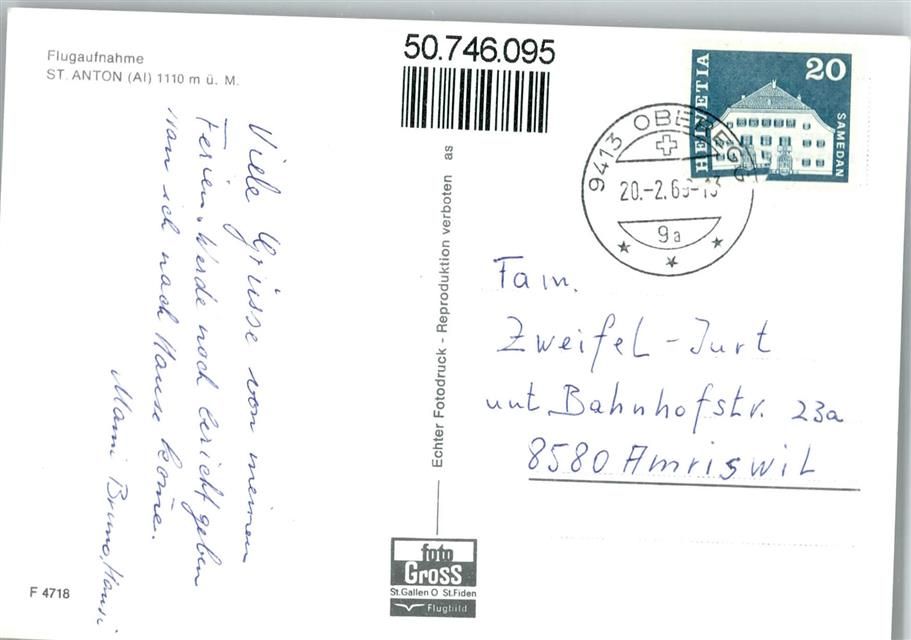 Flugaufnahme
ST. ANTON (AI) 1110 m ü. M.
50.746.095
HELVETIA
20
SAMEDAN
9413 OBEREGG
20.-2.69-13
9a
Viele Grüsse von meinen
Ferien. Werde noch bericht geben
wan ich nach Hause kome.
Mammi Bruno, Hansi
Echter Fotodruck - Reproduktion verboten as
Fam.
Zweifel-Jurt
unt. Bahnhofstr. 23a
8580 Amriswil
F 4718
foto
GROSS
St.Gallen O St.Fiden
Flugbild